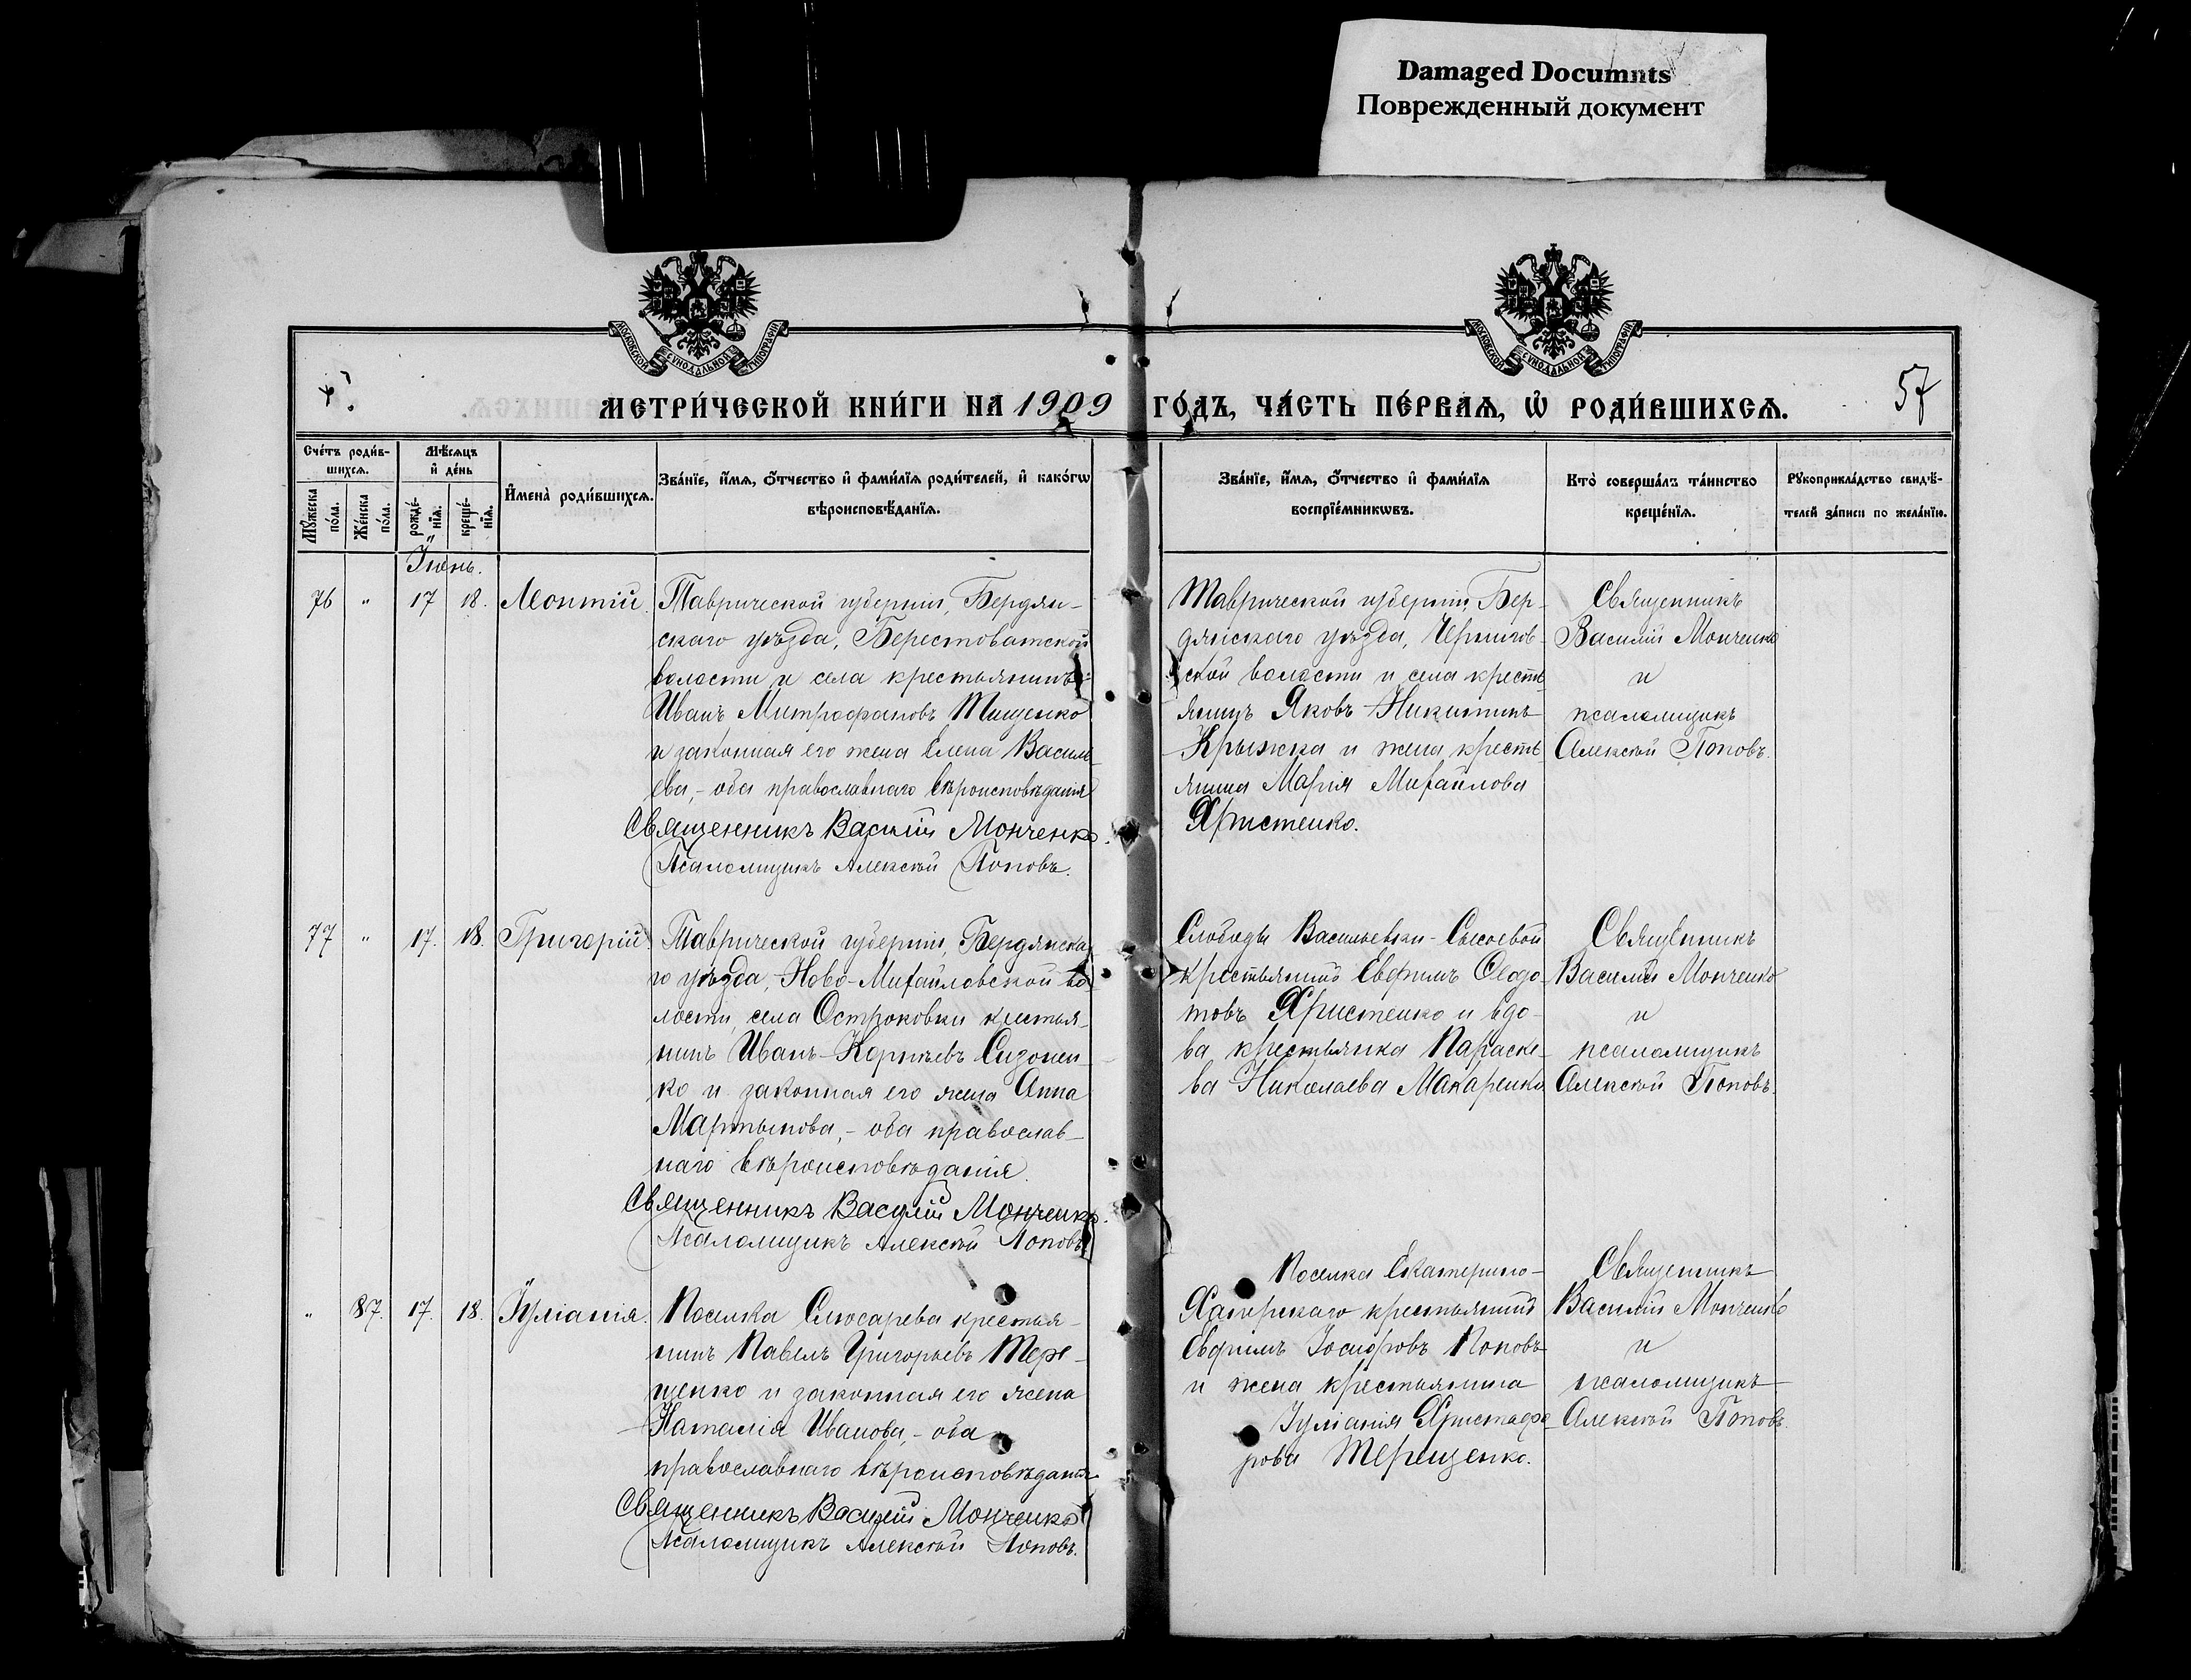 Damaged Documnts
Поврежденный документ
МОСКОВСКОЙ СѴНОДАЛЬНОЙ ТИПОГРАФІИ
МОСКОВСКОЙ СѴНОДАЛЬНОЙ ТИПОГРАФІИ
МЕТРИ́ЧЕСКОЙ КНИ́ГИ НА 1909 ГО́ДЪ, ЧА́СТЬ ПЕ́РВАѦ, Ѡ҆ РОДИ́ВШИХСѦ.
57
Сче́тъ роди́в-
шихсѧ.
Мꙋ́жеска по́ла.
Же́нска по́ла.
Мѣ́сѧцъ и҆ де́нь
рожде́-нїѧ.
креще́-нїѧ.
И҆мена̀ роди́вшихсѧ.
Зва́нїе, и҆́мѧ, ѻ҆́тчество и҆ фами́лїѧ роди́телей, и҆ како́гѡ
вѣроисповѣ́данїѧ.
Зва́нїе, и҆́мѧ, ѻ҆́тчество и҆ фами́лїѧ
воспрїе́мникѡвъ.
Кто̀ соверша́лъ та́инство
креще́нїѧ.
Рꙋкоприкла́дство свидѣ́-
телей за́писи по жела́нїю.
Іюнь.
76 " 17 18. Леонтій.
Таврической губерніи, Бердян-
скаго уѣзда, Берестоватской
волости и села крестьянинъ
Иванъ Митрофановъ Тищенко
и законная его жена Елена Василь-
ева, - оба православнаго вѣроисповѣданія
Священникъ Василій Монченко.
Псаломщикъ Алексѣй Поповъ.
Таврической губерніи, Бер-
дянскаго уѣзда, Чернигов-
ской волости и села кресть-
янинъ Яковъ Никитинъ
Крыжка и жена кресть
янина Марія Михаилова
Христенко.
Священникъ
Василій Монченко
и
псаломщикъ
Алексѣй Поповъ.
77 " 17. 18. Григорій
Таврической губерніи, Бердянска
го уѣзда, Ново-Михайловской во
лости, села Остриковки крестья-
нинъ Иванъ Корнѣевъ Сизонен-
ко и законная его жена Анна
Мартынова, - оба православ-
наго вѣроисповѣданія.
Священникъ Василій Монченко.
Псаломщикъ Алексѣй Поповъ
Слободы Васильевки-Сысоевой
крестьянинъ Евфимъ Ѳеодо-
товъ Христенко и вдо-
ва крестьянка Параске-
ва Николаева Макаренко
Священникъ
Василій Монченко
и
псаломщикъ
Алексѣй Поповъ.
" 87. 17. 18. Іуліанія.
Поселка Слюсарева крестья-
нинъ Павелъ Григорьевъ Тере-
щенко и законная его жена
Наталія Иванова, - оба
православнаго вѣроисповѣданія
Священникъ Василій Монченко
Псаломщикъ Алексѣй Поповъ.
Поселка Екатерино-
Хаперскаго крестьянинъ
Евфимъ Іосифовъ Поповъ
и жена крестьянина
Іуліанія Христофо-
рова Терещенко.
Священникъ
Василій Монченко
и
псаломщикъ
Алексѣй Поповъ.